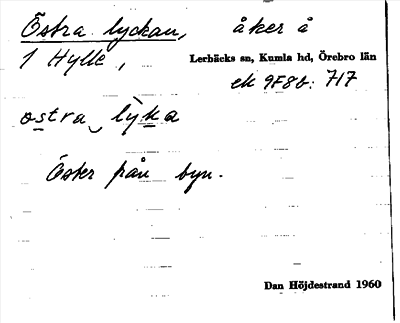 Östra lyckan, åker å
1 Hylle,
Lerbäcks sn, Kumla hd, Örebro län
ek 9F8b: 717
ostra lỳka
Öster från byn.
Dan Höjdestrand 1960